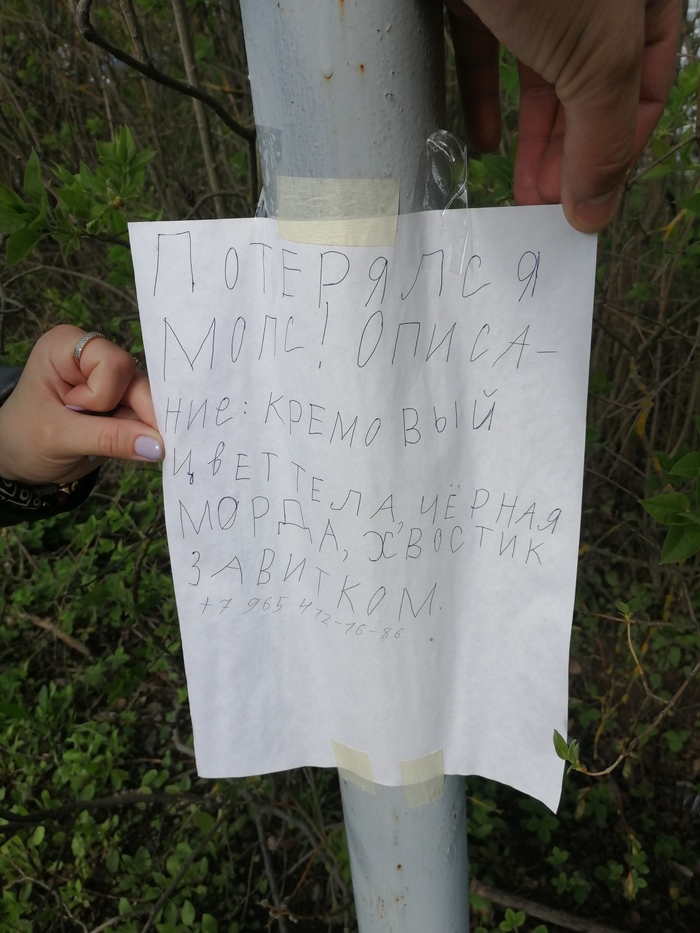 Потерялся
мопс! Описа-
ние: кремовый
цвет тела, чёрная
морда, хвостик
завитком.
+7 965 412-16-86